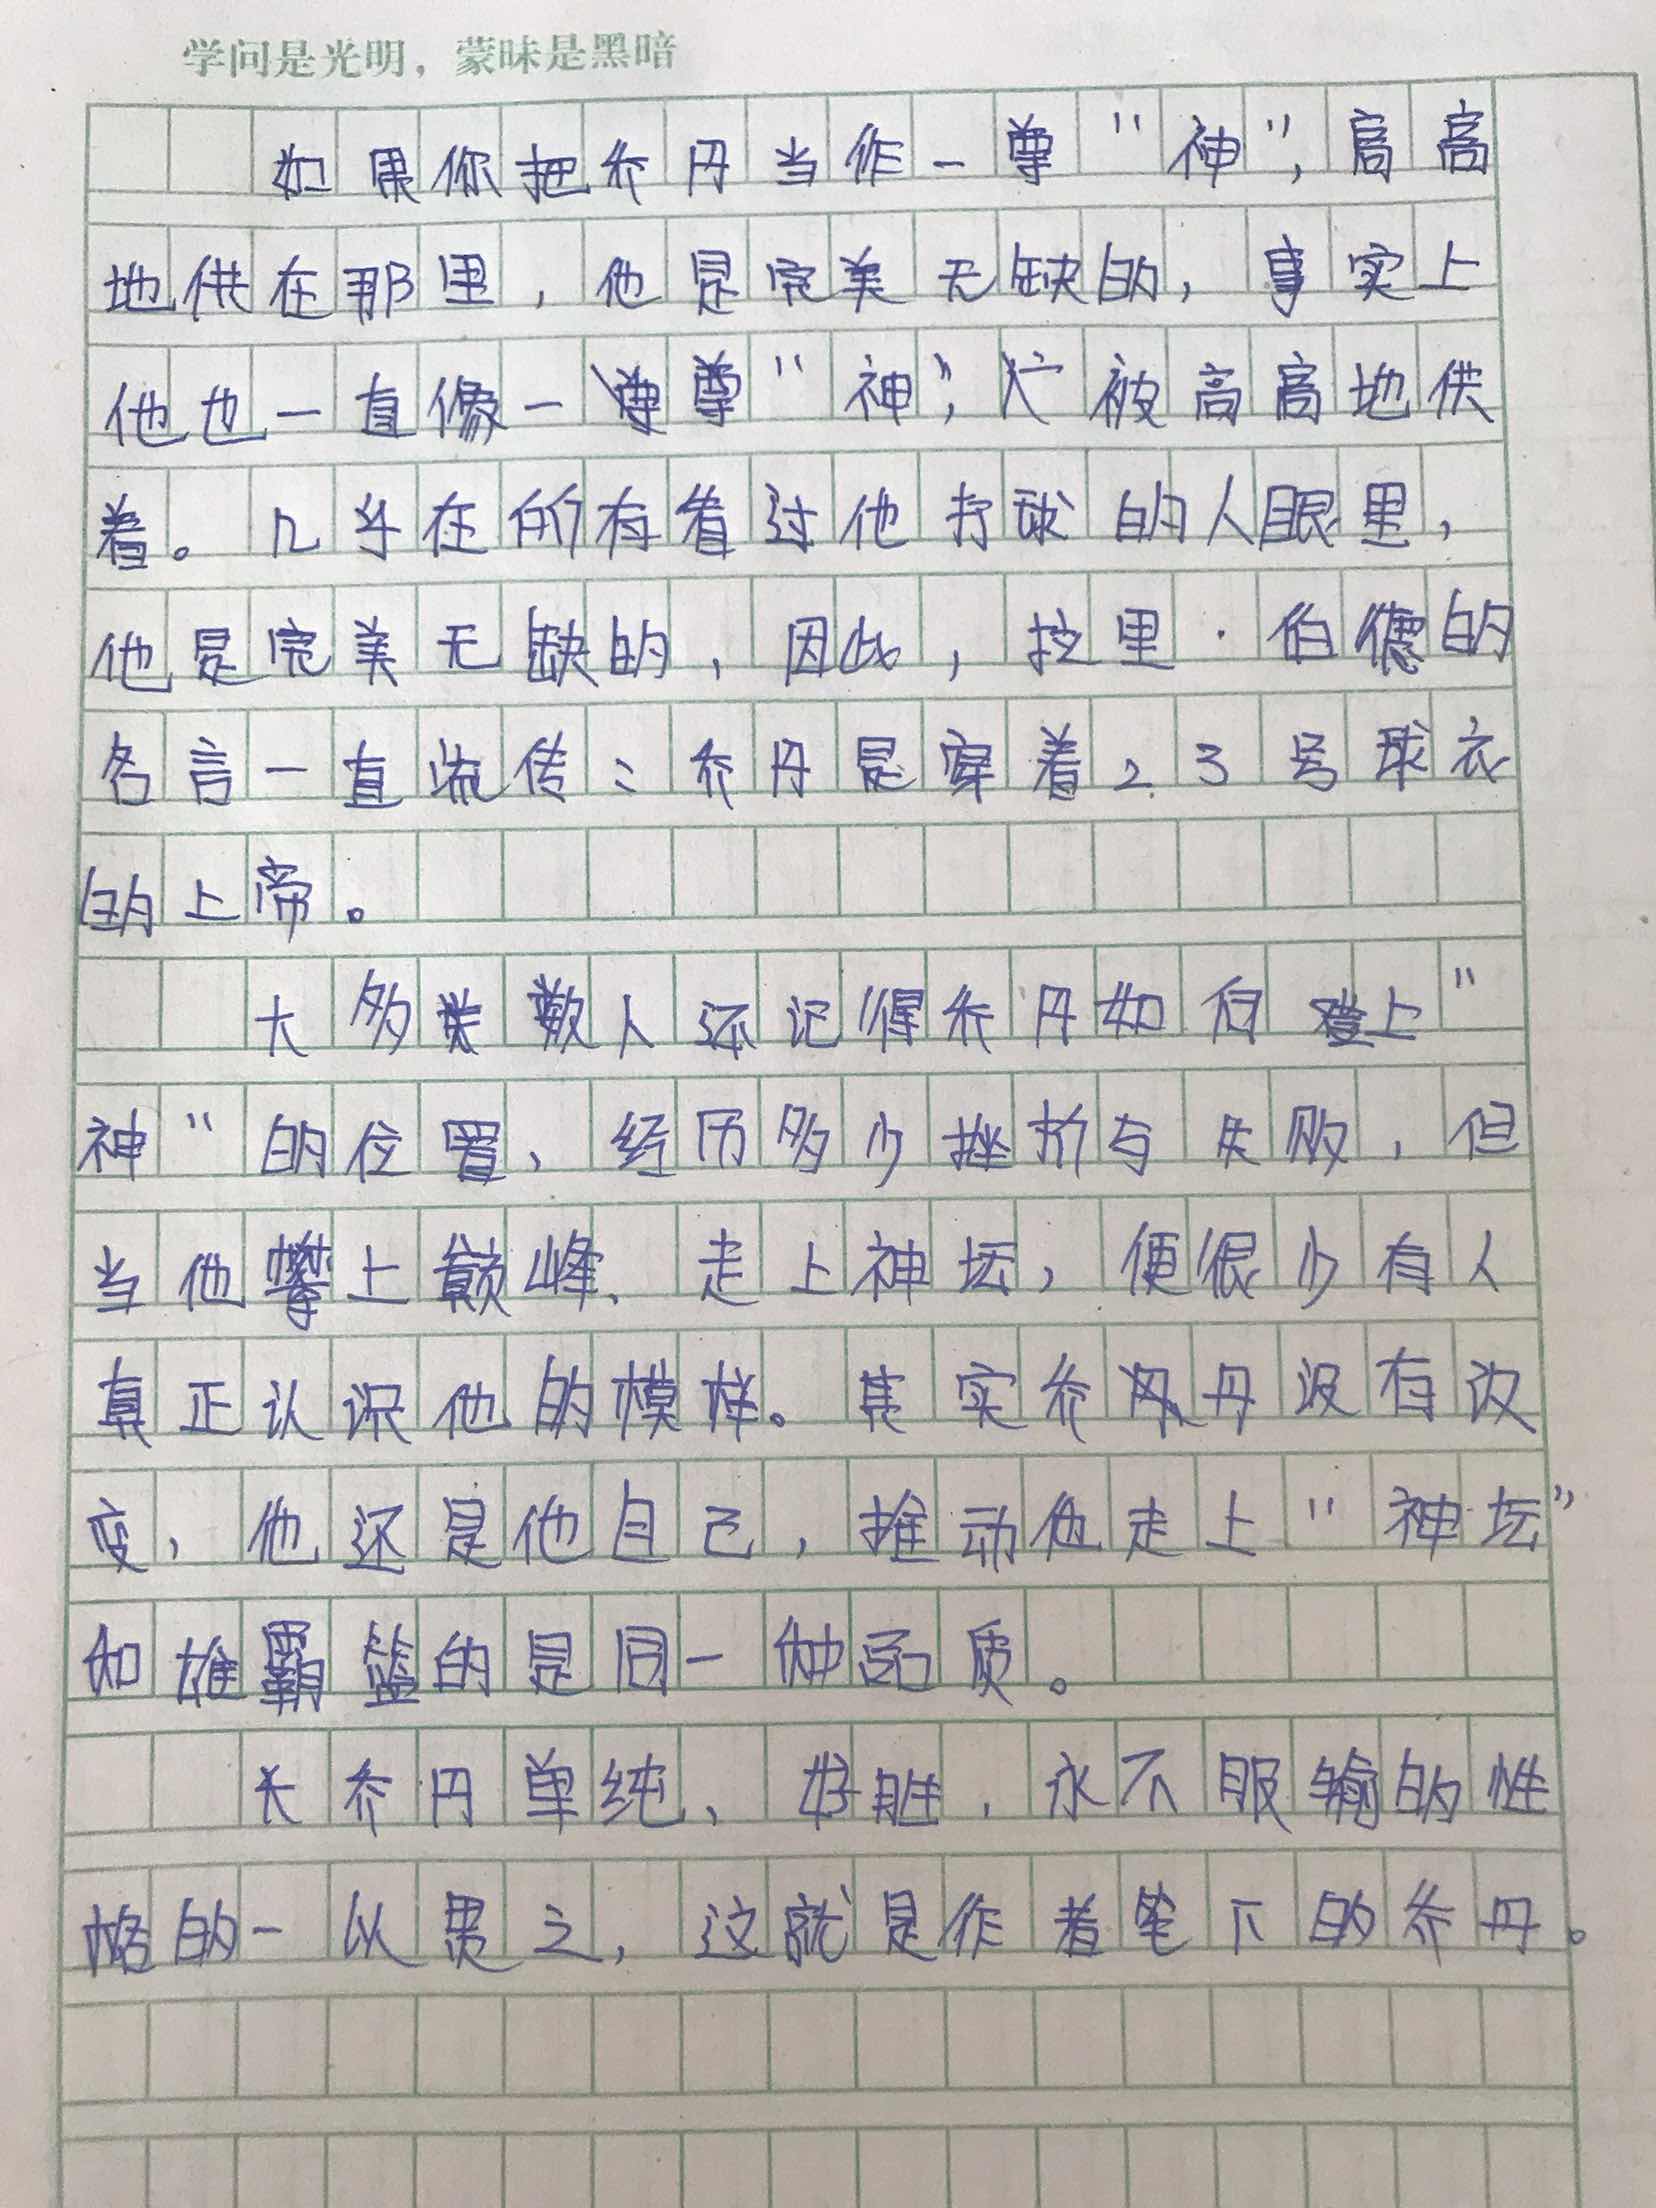 学问是光明，蒙昧是黑暗
如果你把乔丹当作一尊“神”，高高
地供在那里，他是完美无缺的，事实上
他也一直像一尊“神”，被高高地供
着。几乎在所有看过他打球的人眼里，
他是完美无缺的，因此，拉里·伯德的
名言一直流传：乔丹是穿着23号球衣
的上帝。
大多数人还记得乔丹如何登上“
神”的位置、经历多少挫折与失败，但
当他攀上巅峰、走上神坛，便很少有人
真正认识他的模样。其实乔丹没有改
变，他还是他自己，推动他走上“神坛”
和雄霸篮的是同一种品质。
乔丹单纯、好胜，永不服输的性
格的一以贯之，这就是作者笔下的乔丹。